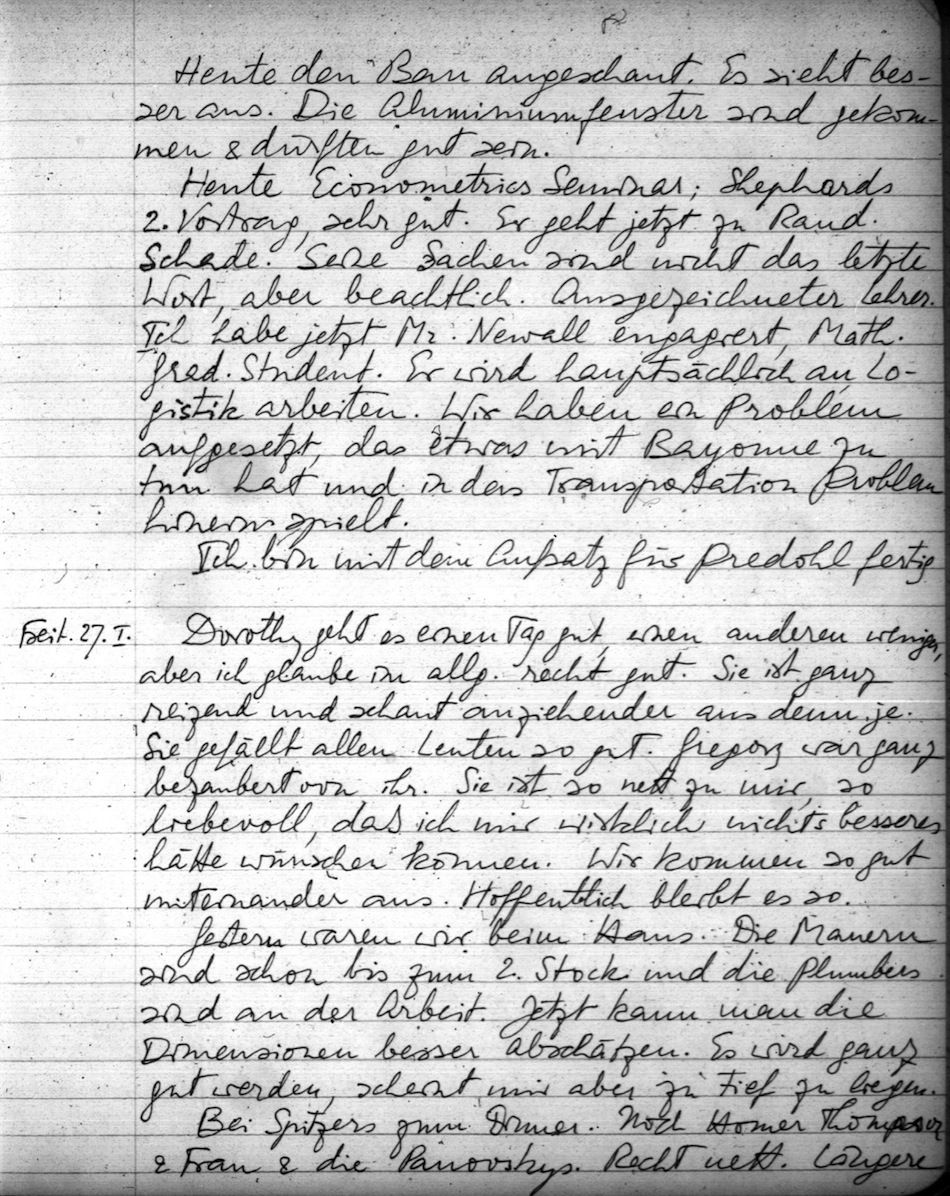 Heute den Bau angeschaut. Es sieht bes-
ser aus. Die Aluminiumfenster sind gekom-
men & dürften gut sein.
Heute Econometrics Seminar; Shephards
2. Vortrag, sehr gut. Er geht jetzt zu Rand.
Schade. Seine Sachen sind nicht das letzte
Wort, aber beachtlich. Ausgezeichneter Lehrer.
Ich habe jetzt Mr. Newall engagiert, Math.
grad. Student. Er wird hauptsächlich an Lo-
gistik arbeiten. Wir haben ein Problem
aufgesetzt, das etwas mit Bayonne zu
tun hat und in das Transportation Problem
hineinspielt.
Ich bin mit dem Aufsatz für Predöhl fertig
Freit. 27. I. Dorothy geht es einen Tag gut, einen anderen weniger,
aber ich glaube im allg. recht gut. Sie ist ganz
reizend und schaut anziehender aus denn je.
Sie gefällt allen Leuten so gut. Gregory war ganz
bezaubert von ihr. Sie ist so nett zu mir, so
liebevoll, daß ich mir wirklich nichts besseres
hätte wünschen können. Wir kommen so gut
miteinander aus. Hoffentlich bleibt es so.
Gestern waren wir beim Haus. Die Mauern
sind schon bis zum 2. Stock und die Plumbers
sind an der Arbeit. Jetzt kann man die
Dimensionen besser abschätzen. Es wird ganz
gut werden, scheint mir aber zu tief zu liegen.
Bei Spitzers zum Dinner. Noch Homer Thompson
& Frau & die Panovskys. Recht nett. Längere